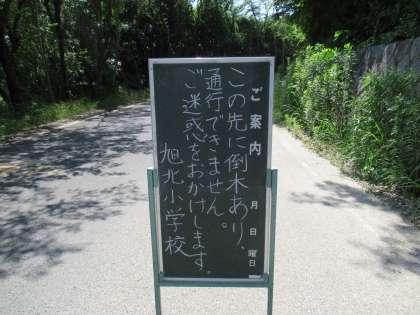 ご案内 月 日 曜日
この先に倒木あり、
通行できません。
ご迷惑をおかけします。
旭北小学校